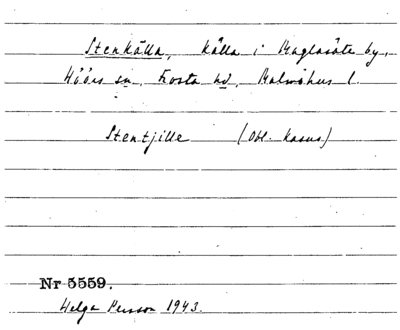 Stenkälla, källa i Maglasäte by,
Höörs sn, Frosta hd, Malmöhus l.
Stentjille (Obl. kasus)
Nr 5559.
Helga Persson 1943.